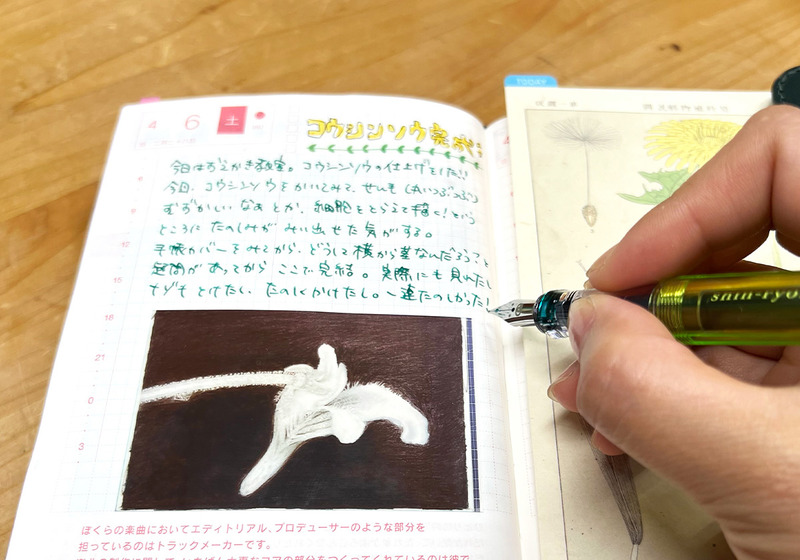 TODAY
4 6 土
コウシンソウ完成
今日はおえかき教室。コウシンソウの仕上げをした!!
今日、コウシンソウをかいてみて、せんも(丸いつぶつぶ)
むずかしいなあとか、細胞をとらえて描く!という
ところにたのしみがみい出せた気がする。
手帳カバーをみてから、どうして横から茎なんだろう?と
疑問があってから ここで完結。実際にも見れたし
たのしくかけたし。一連たのしかった!
9
12
15
18
21
0
3
ぼくらの楽曲においてエディトリアル、プロデューサーのような部分を
担っているのはトラックメーカーです。
shin-ryo